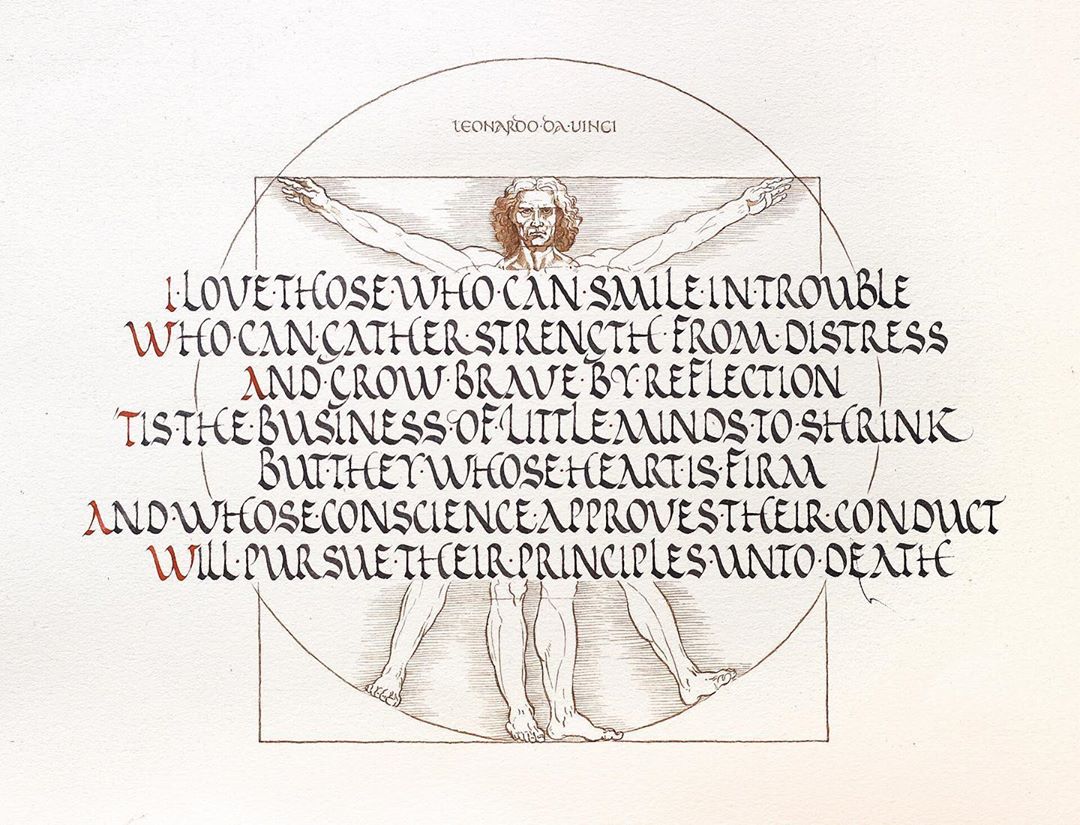 LEONARDO·DA·VINCI
I·LOVE·THOSE·WHO·CAN·SMILE·IN·TROUBLE
WHO·CAN·GATHER·STRENGTH·FROM·DISTRESS
AND·GROW·BRAVE·BY·REFLECTION
TIS·THE·BUSINESS·OF·LITTLE·MINDS·TO·SHRINK
BUT·THEY·WHOSE·HEART·IS·FIRM
AND·WHOSE·CONSCIENCE·APPROVES·THEIR·CONDUCT
WILL·PURSUE·THEIR·PRINCIPLES·UNTO·DEATH